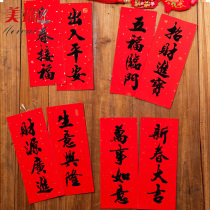 出入平安
迎春接福
招財進寶
五福臨門
生意興隆
財源廣進
新春大吉
萬事如意